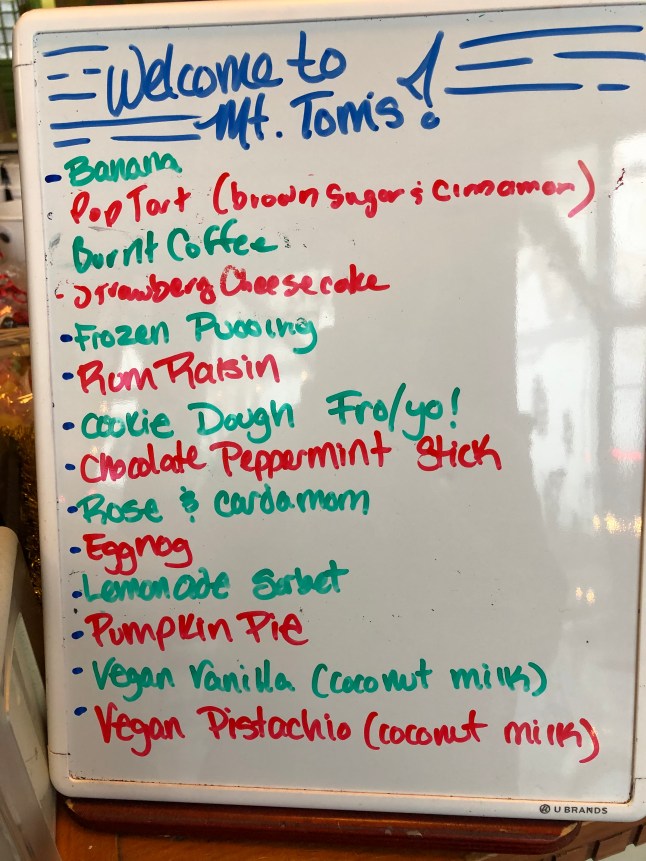 Welcome to
Mt. Tom's!
• Banana
Pop Tart (brown sugar & cinnamon)
Burnt Coffee
• Strawberry Cheesecake
• Frozen Pudding
• Rum Raisin
• Cookie Dough Fro/yo!
• Chocolate Peppermint Stick
• Rose & Cardamom
• Eggnog
• Lemonade Sorbet
• Pumpkin Pie
• Vegan Vanilla (coconut milk)
• Vegan Pistachio (coconut milk)
U BRANDS